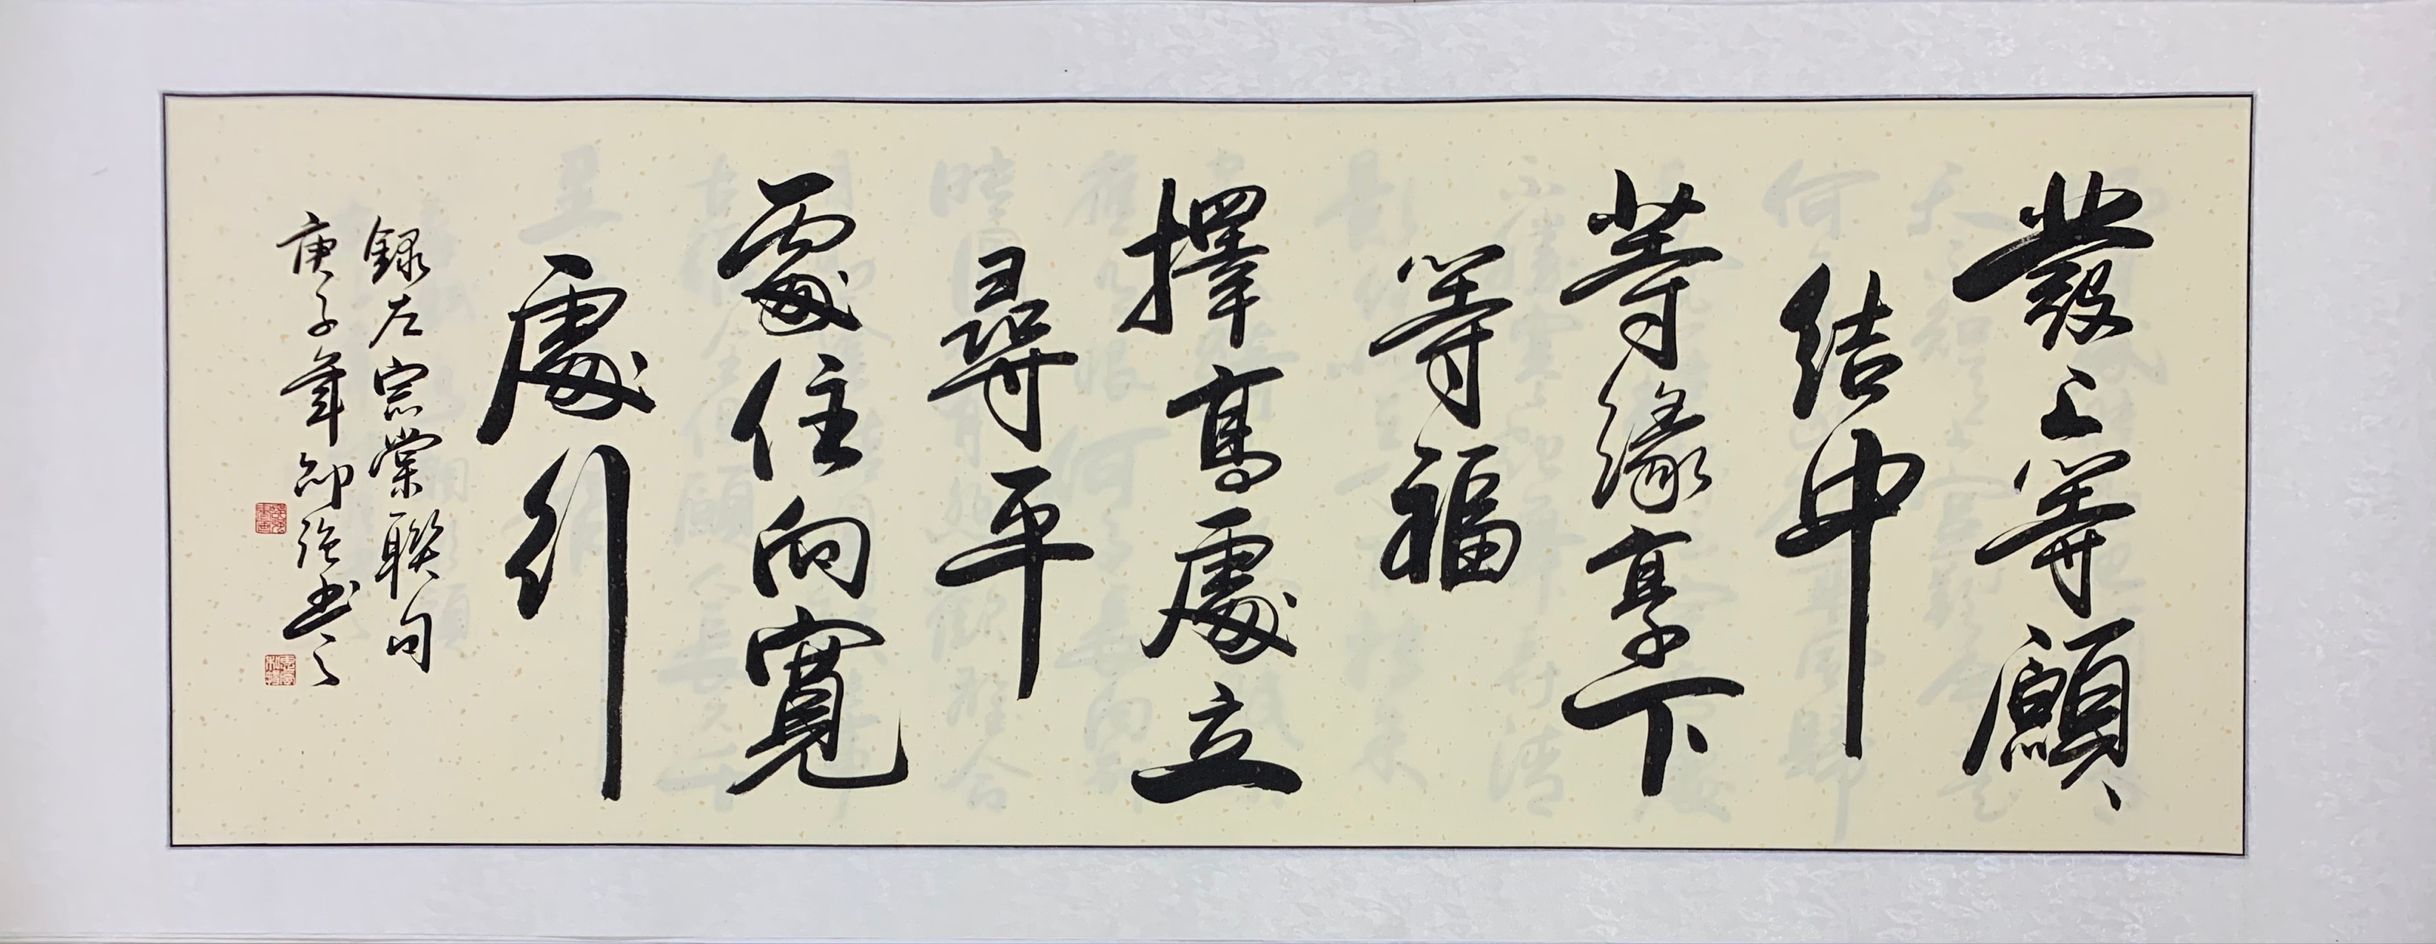 發上等願
結中
等緣享下
等福
擇高處立
尋平
處住向寬
處行
錄左宗棠聯句
庚子年邵強書之